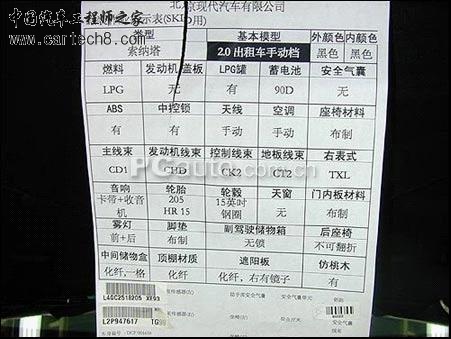 中国汽车工程师之家
www.cartech8.com
北京现代汽车有限公司
示表(SKD用)
类型 基本模型 外颜色 内颜色
索纳塔 2.0 出租车手动档 黑色 黑色
燃料 发动机 盖板 LPG罐 蓄电池 安全气囊
LPG 无 有 90D 无
ABS 中控锁 天线 空调 座椅材料
有 有 手动 手动 布制
主线束 发动机线束 控制线束 地板线束 右表式
CD1 CHD CK2 CT2 TXL
PCauto.com.cn
音响 轮胎 轮毂 天窗 门内板材料
卡带+收音机 205 HR 15 15英吋钢圈 无 布制
雾灯 脚垫 副驾驶储物箱 后座椅
前+后 布制 无锁 不可翻折
中间储物盒 顶棚材质 遮阳板 仿桃木
化纤,一格 化纤 化纤,右有镜子 有
L4GC2518205 XE93
助手席安全气囊 安全气囊单元
L2P947617 TG99